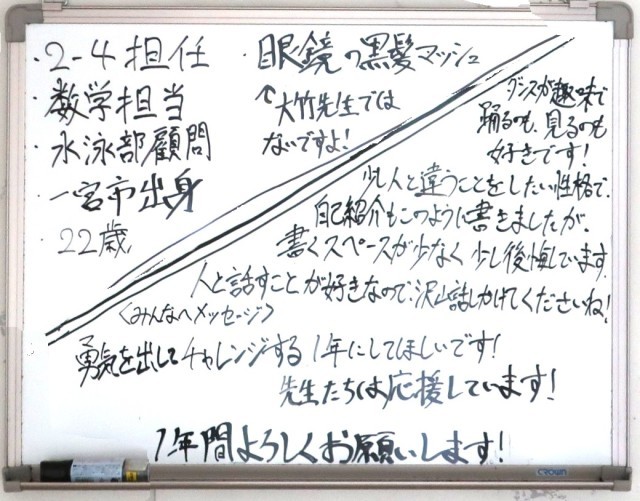 ・2-4 担任
・数学担当
・水泳部顧問
・一宮市出身
・22歳
・眼鏡の黒髪マッシュ
↑大竹先生では
ないですよ！
ダンスが趣味で
踊るのも、見るのも
好きです！
少し人と違うことをしたい性格で、
自己紹介もこのように書きましたが、
書くスペースが少なく少し後悔しています
人と話すことが好きなので、沢山話しかけてくださいね！
＜みんなへメッセージ＞
勇気を出してチャレンジする1年にしてほしいです！
先生たちは応援しています！
1年間よろしくお願いします！
CROWN